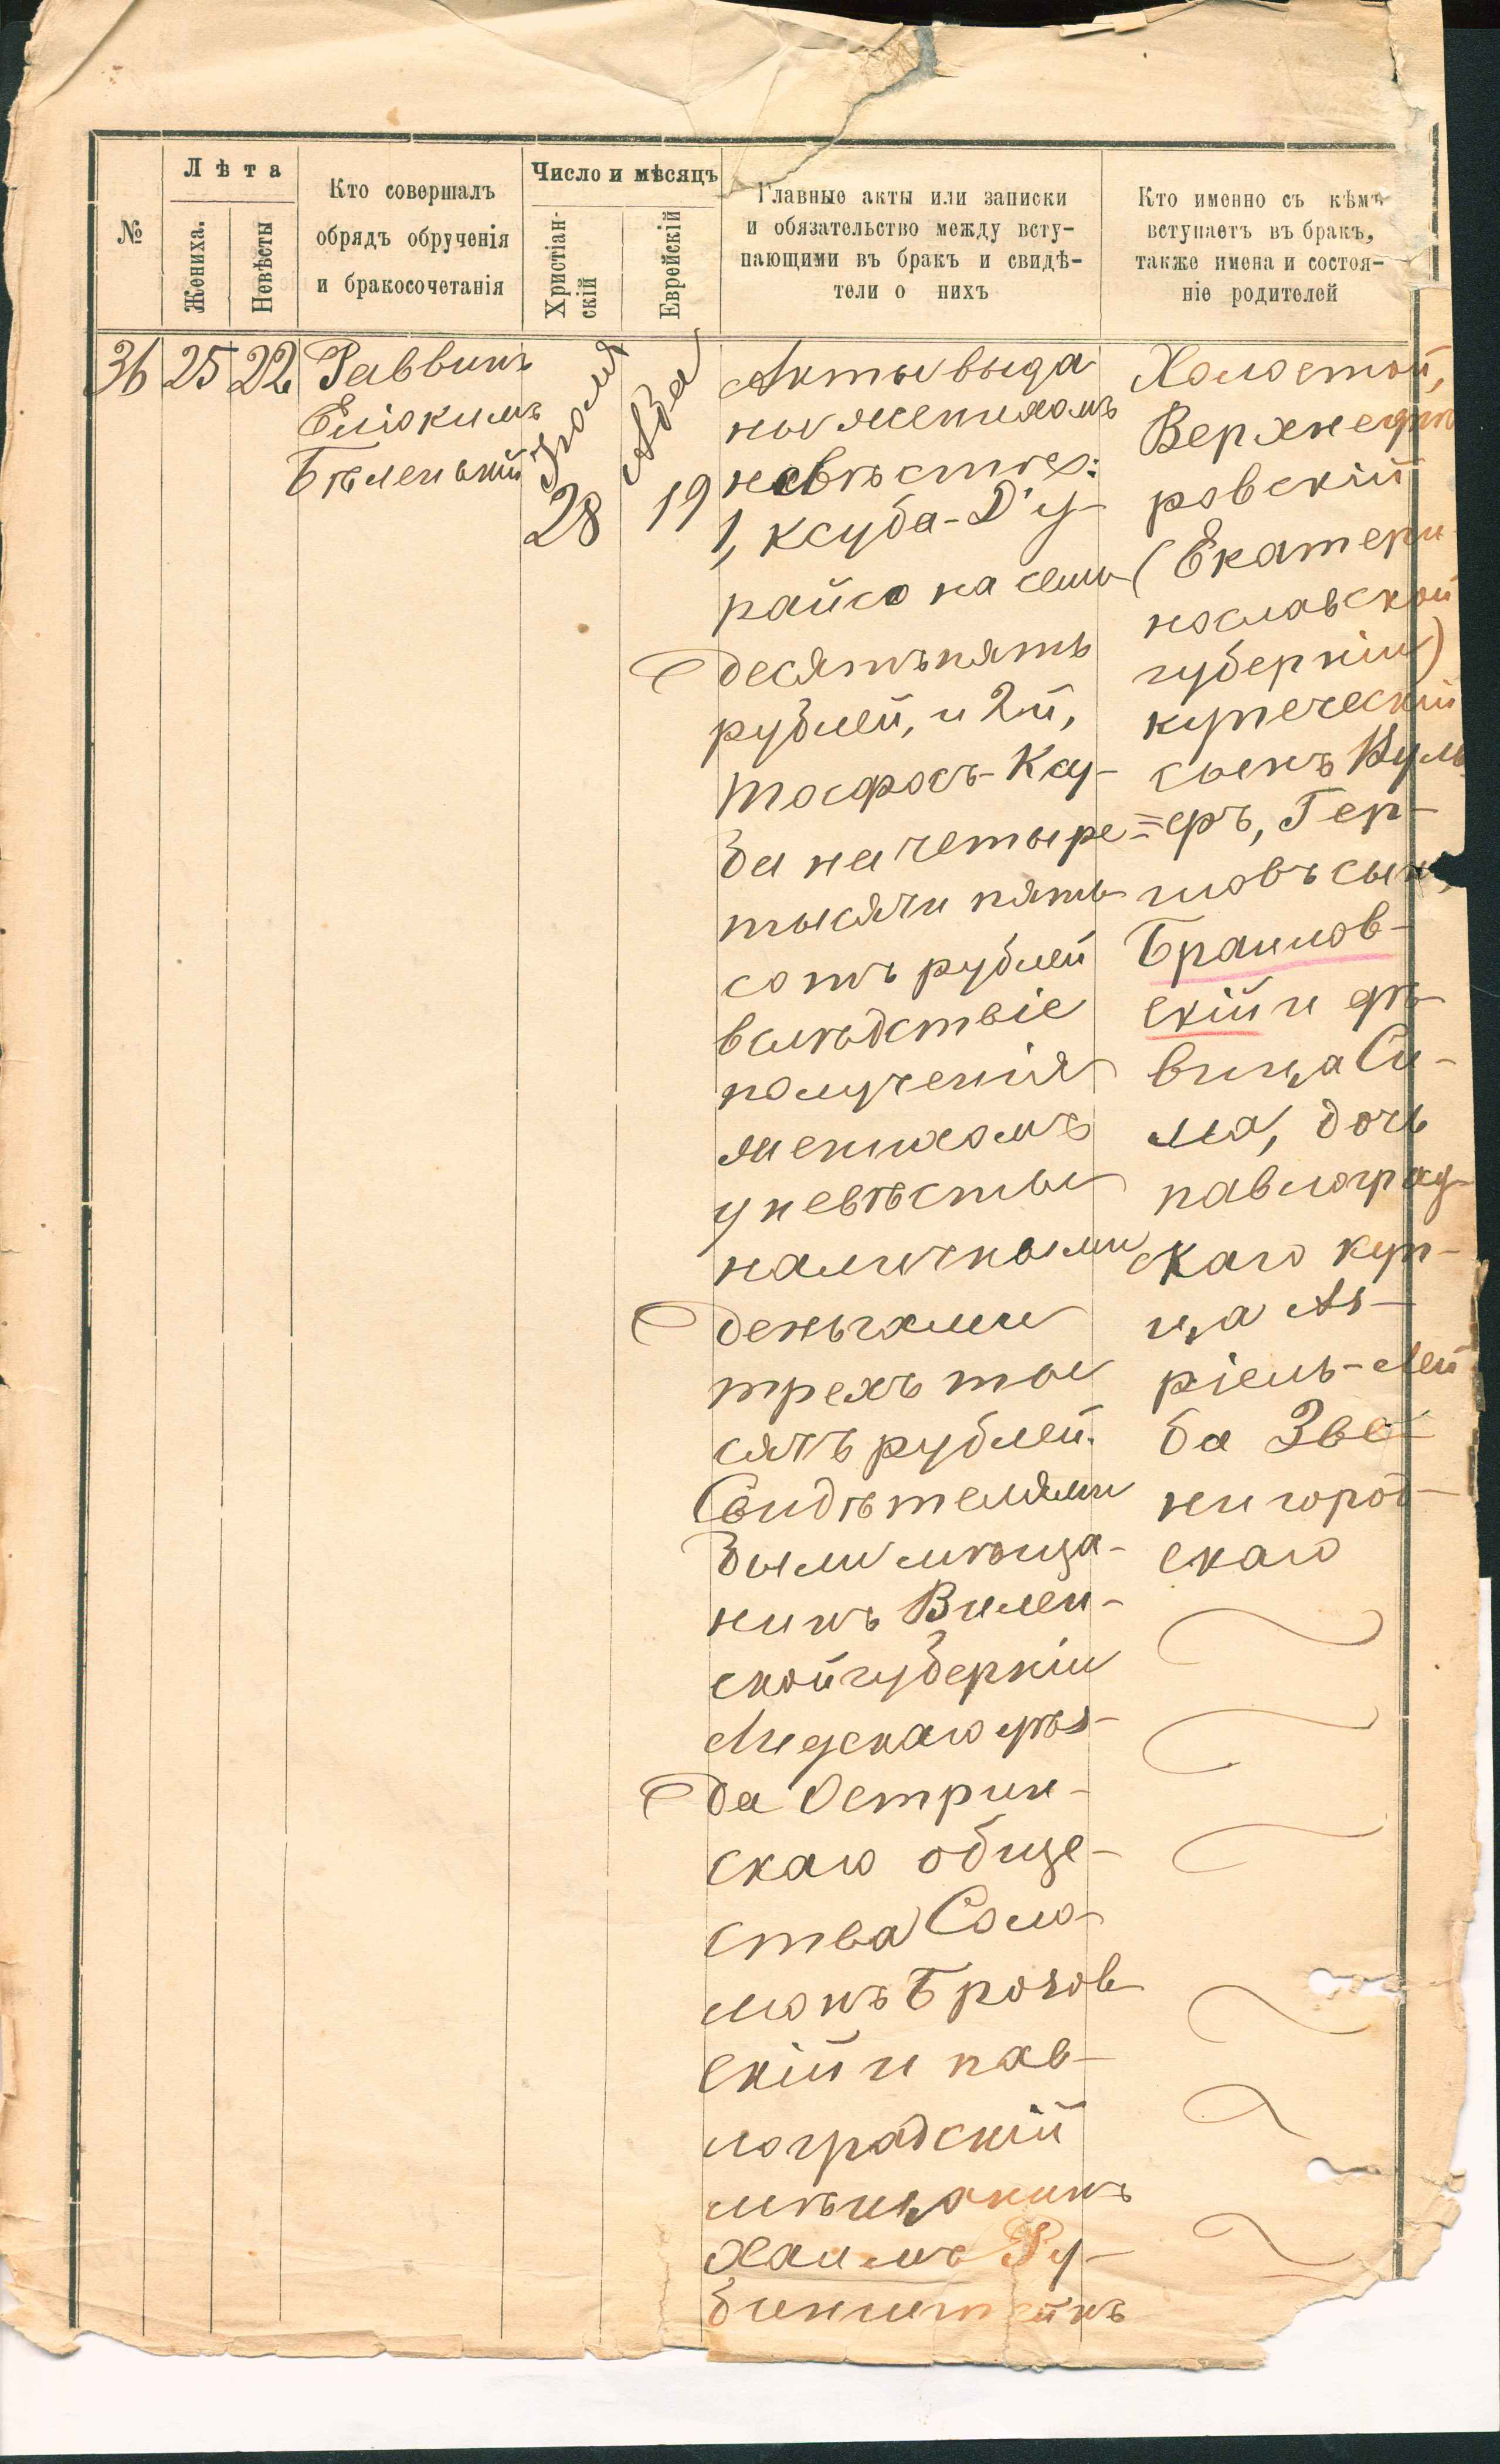 №
Лѣта
Жениха.
Невѣсты
Кто совершалъ
обрядъ обрученія
и бракосочетанія
Число и мѣсяцъ
Христіан-
скій
Еврейскій
Главные акты или записки
и обязательство между всту-
пающими въ бракъ и свидѣ-
тели о нихъ
Кто именно съ кѣмъ
вступаетъ въ бракъ,
также имена и состоя-
ніе родителей
36
25
22
Раввинъ
Еліокимъ
Бѣленькій
Іюля
28
Ава
19
Акты выда
ны женихомъ
невѣстѣ:
1, ксуба-Д'у-
райсо на семь
десятъ пять
рублей, и 2й,
тосфосъ-Ксу-
ба на четыре
тысячи пять
сотъ рублей
вслѣдствіе
полученія
женихомъ
у невѣсты
наличными
деньгами
трехъ ты
сячъ рублей.
Свидѣтелями
были мѣща-
нинъ Вилен-
ской губерніи
Лидскаго уѣз-
да Острин-
скаго обще-
ства Соло-
монъ Брозов
скій и пав-
лоградскій
мѣщанинъ
Хаимъ Ру-
бинштейнъ
Холостой,
Верхнеднѣ
ровскій
(Екатери
нославской
губерніи)
купеческій
сынъ Вуль
=фъ, Гер-
шовъ сынъ,
Браилов-
скій и дѣ-
вица Си-
ма, дочь
павлоград-
скаго куп-
ца Аз-
ріель-Лей
ба Зве-
нигород-
скаго